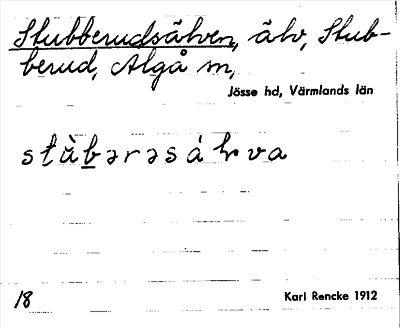 Stubberudsälven, älv, Stub-
berud, Algå sn,
Jösse hd, Värmlands län
stùb̲ərəsáɽva
18
Karl Rencke 1912